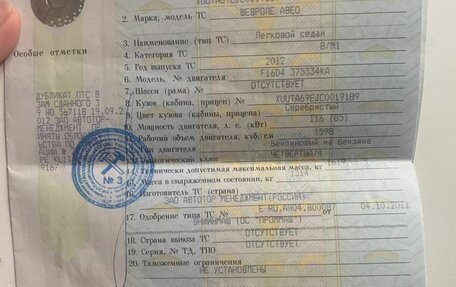 2. Марка, модель ТС ШЕВРОЛЕ АВЕО
3. Наименование (тип ТС) Легковой седан
4. Категория ТС B/M1
5. Год выпуска ТС 2012
6. Модель, № двигателя F16D4 375334КА
7. Шасси (рама) № ОТСУТСТВУЕТ
8. Кузов (кабина, прицеп) № XUUTA69EJC0019189
9. Цвет кузова (кабины, прицепа) Серебристый
10. Мощность двигателя, л. с. (кВт) 116 (85)
11. Рабочий объем двигателя, куб. см 1598
двигателя Бензиновый на бензине
класс ЧЕТВЕРТЫЙ
14. Технически допустимая максимальная масса, кг 1619
15. Масса в снаряженном состоянии, кг 1314
16. Изготовитель ТС (страна) ЗАО АВТОТОР-МЕНЕДЖМЕНТ(РОССИЯ)
17. Одобрение типа ТС № от 04.10.2011
18. Страна вывоза ТС ОТСУТСТВУЕТ
19. Серия, № ТД, ТПО ОТСУТСТВУЕТ
20. Таможенные ограничения НЕ УСТАНОВЛЕНЫ
Особые отметки
ДУБЛИКАТ ПТС В
ЗАМ СДАННОГО 3
9 НО 567118 19.09.2
012 ЗАО АВТОТОР-
МЕНЕДЖМЕНТ
9167
№ 3